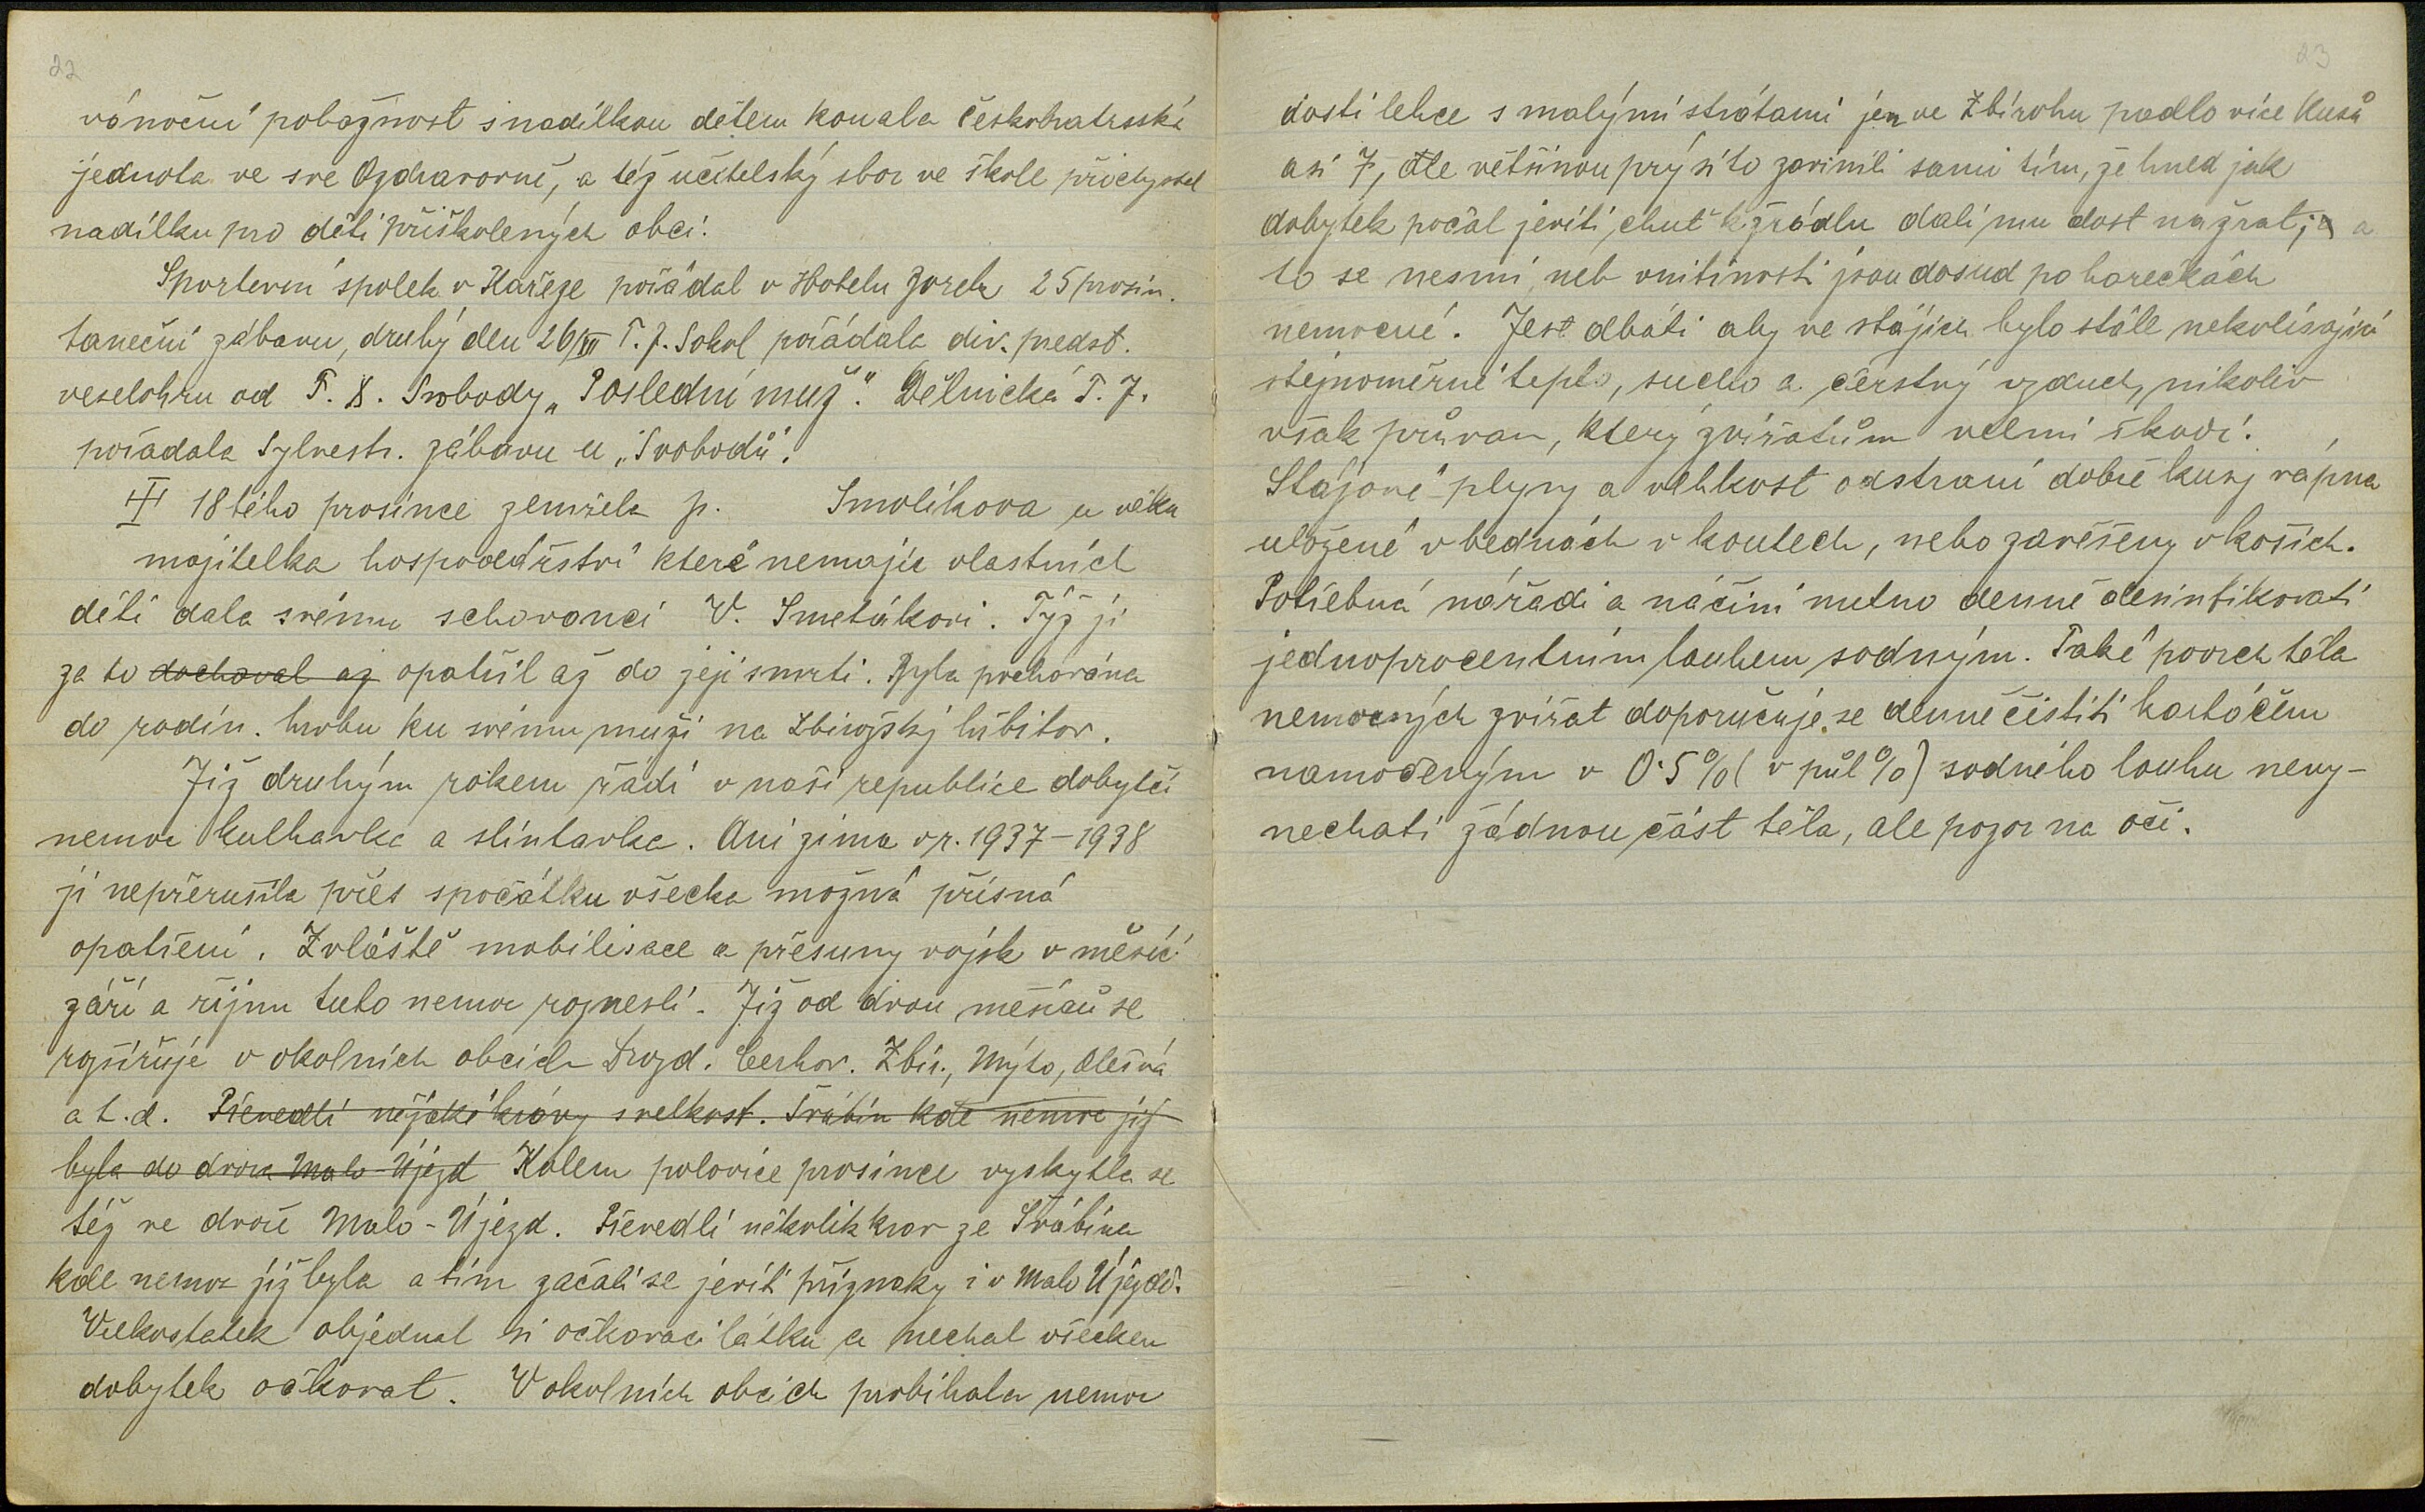 22
vánoční pobožnost s nadílkou dětem konala Českobratrská
jednota ve své Ozdravovně, a též učitelský sbor ve škole přichystal
nadílku pro děti přiškolených obcí.
Sportovní spolek v Kařeze pořádal v Hotelu Zorek 25 prosin.
taneční zábavu, druhý den 26/XII T. J. Sokol pořádala div. předst.
veselohru od F. X. Svobody „Poslední muž". Dělnická T. J.
pořádala Sylvestr. zábavu u „Svobodů".
18tého prosince zemřela p. Smolíkova u věku
majitelka hospodářství které nemajíc vlastních
dětí dala svému schovanci V. Smetákovi. Týž ji
za to dochoval až opatřil až do její smrti. Byla pochována
do rodin. hrobu ku svému muži na Zbirožský hřbitov.
Již druhým rokem řádí v naší republice dobytčí
nemoc kulhavka a slintavka. Ani zima v r. 1937-1938
ji nepřerušila přes spočátku všecka možná přísná
opatření. Zvláště mobilisace a přesuny vojsk v měsíci
září a říjnu tuto nemoc roznesli. Již od dvou měsíců se
rozšiřuje v okolních obcích Drozd. Cerhov. Zbir., Mýto, Olešná
a t. d. Převedli nějaké krávy s velkost. Švábín kde nemoc již
byla do dvora Malo-Újezd Kolem polovice prosince vyskytla se
též ve dvoře Malo-Újezd. Převedli několik krav ze Švábína
kde nemoc již byla a tím začali se jeviti příznaky i v Malo Újezdě.
Velkostatek objednal si očkovací látku a nechal všecken
dobytek očkovat. V okolních obcích probíhala nemoc
23
dosti lehce s malými strátami jen ve Zbirohu padlo více kusů
asi 7, ale většinou prý si to zavinili sami tím, že hned jak
dobytek počal jeviti chuť k žrádlu dali mu dost nažrat, a
to se nesmí, neb vnitřnosti jsou dosud po horečkách
nemocné. Jest dbáti aby ve stájích bylo stále nekolísající
stejnoměrné teplo, sucho a čerstvý vzduch, nikoliv
však průvan, který zvířatům velmi škodí.
Stájové plyny a vlhkost odstraní dobře kusy vápna
uložené v bednách v koutech, nebo zavěšeny v koších.
Potřebná nářadí a náčiní nutno denně desinfikovati
jednoprocentním louhem sodným. Také povrch těla
nemocných zvířat doporučuje se denně čistiti kartáčem
namočeným v 0·5% (v půl %) sodného louhu nevy-
nechati žádnou část těla, ale pozor na oči.